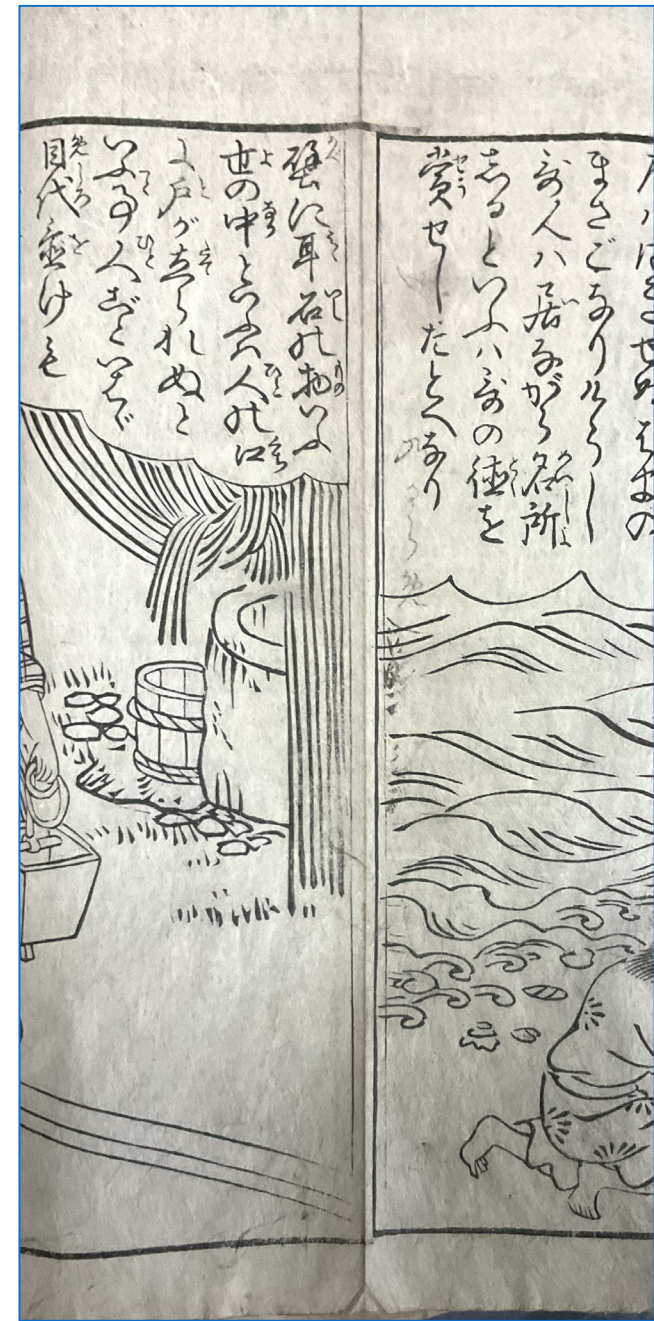 まさごなりけらし
哥人ハ居ながら名所
志るといふハ哥の徳を
賞せしたとへなり
壁に耳石の物いふ
世の中といふハ人の口
に戸が立られぬと
いふ事人ごといはゞ
目代置けも